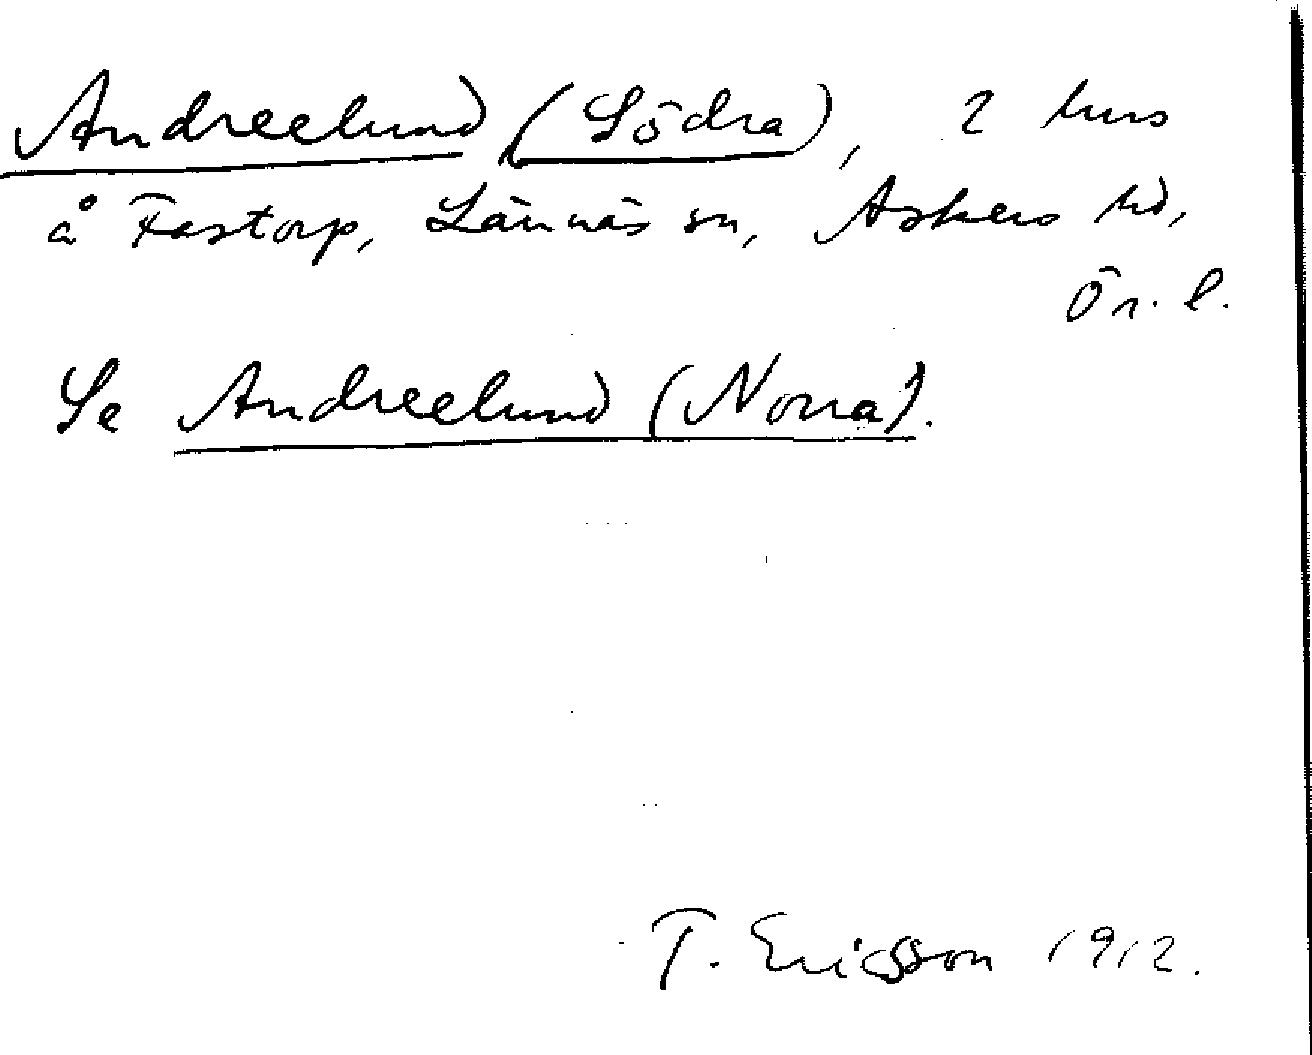 Andreelund (Södra), 2 hus
å Fastorp, Lännäs sn, Askers hd,
Ör. l.
Se Andreelund (Norra).
T. Ericsson 1912.